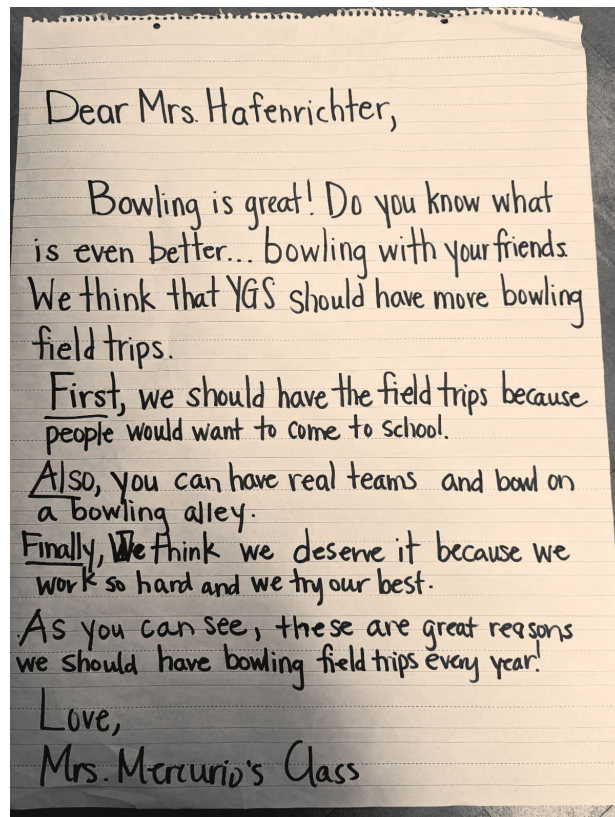 Dear Mrs. Hafenrichter,
Bowling is great! Do you know what
is even better... bowling with your friends.
We think that YGS should have more bowling
field trips.
First, we should have the field trips because
people would want to come to school.
Also, you can have real teams and bowl on
a bowling alley.
Finally, We think we deserve it because we
work so hard and we try our best.
As you can see, these are great reasons
we should have bowling field trips every year!
Love,
Mrs. Mercurio's Class